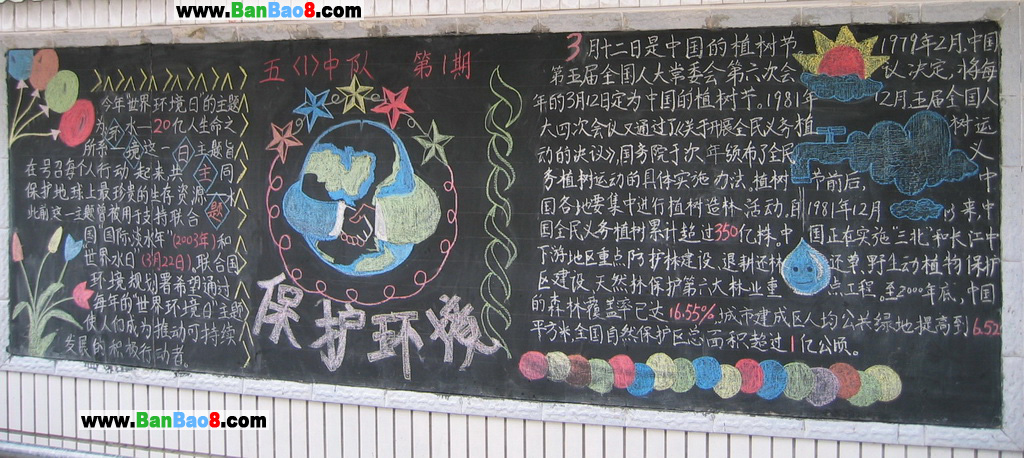 www.BanBao8.com
五〈1〉中队 第1期
今年"世界环境日"的主题
为 水—20亿人生命之
所系 境这一 日 主题旨
在号召每个人行动起来,共 主 同
保护地球上最珍贵的生存资源—水
此前这一主题曾被用于支持联合 题
国"国际淡水年"(2003年)和
世界水日"(3月22日)。联合国
环境规划署希望通过
每年的"世界环境日"主题
使人们成为推动可持续
发展的积极行动者。
保护环境
3月十二日是中国的植树节 1979年2月,中国
第五届全国人大常委会第六次会 议决定,将每
年的3月12日定为中国的植树节。1981年 12月,五届全国人
大四次会议又通过了《关于开展全民义务植 树运
动的决议》,国务院于次年颁布了全民 义
务植树运动的具体实施办法。植树 节前后, 中
国各地要集中进行植树造林活动,自 1981年12月 以来,中
国全民义务植树累计超过350亿株。中 国正在实施"三北"和长江中
下游地区重点防护林建设、退耕还林 还草、野生动植物保护
区建设、天然林保护等六大林业重 点工程。至2000年底,中国
的森林覆盖率已达16.55%,城市建成区人均公共绿地提高到6.52
平方米,全国自然保护区总面积超过1亿公顷。
www.BanBao8.com